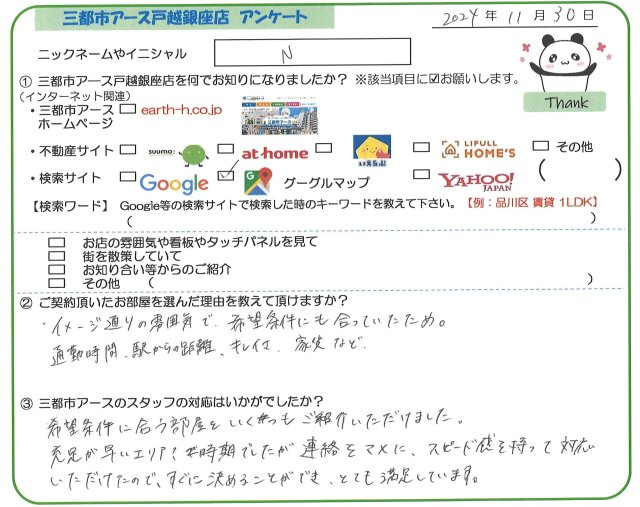 三都市アース戸越銀座店 アンケート
2024年 11月 30日
ニックネームやイニシャル N
① 三都市アース戸越銀座店を何でお知りになりましたか？ ※該当項目に☑お願いします。
(インターネット関連)
・三都市アース ホームページ □ earth-h.co.jp
Thank
・不動産サイト □ suumo □ at home □ いえらぶ □ LIFULL HOME'S □ その他
・検索サイト □ Google ☑ グーグルマップ □ YAHOO! JAPAN ( )
【検索ワード】 Google等の検索サイトで検索した時のキーワードを教えて下さい。【例：品川区 賃貸 1LDK】
( )
□ お店の雰囲気や看板やタッチパネルを見て
□ 街を散策していて
□ お知り合い等からのご紹介
□ その他 ( )
② ご契約頂いたお部屋を選んだ理由を教えて頂けますか？
・イメージ通りの雰囲気で、希望条件にも合っていたため。
通勤時間、駅からの距離、キレイさ、家賃など.
③ 三都市アースのスタッフの対応はいかがでしたか？
希望条件に合う部屋をいくつもご紹介いただけました。
充足が早いエリア、時期でしたが連絡をマメに、スピード感を持って対応
いただけたので、すぐに決めることができ、とても満足しています。